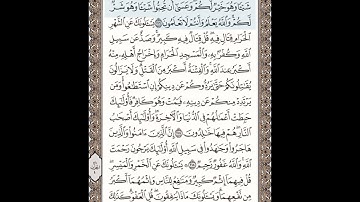 شَيْئًا وَهُوَ خَيْرٌ لَّكُمْ وَعَسَىٰ أَن تُحِبُّوا۟ شَيْئًا وَهُوَ شَرٌّ
لَّكُمْ وَٱللَّهُ يَعْلَمُ وَأَنتُمْ لَا تَعْلَمُونَ يَسْـَٔلُونَكَ عَنِ ٱلشَّهْرِ
ٱلْحَرَامِ قِتَالٍ فِيهِ قُلْ قِتَالٌ فِيهِ كَبِيرٌ وَصَدٌّ عَن سَبِيلِ
ٱللَّهِ وَكُفْرٌۢ بِهِۦ وَٱلْمَسْجِدِ ٱلْحَرَامِ وَإِخْرَاجُ أَهْلِهِۦ مِنْهُ
أَكْبَرُ عِندَ ٱللَّهِ وَٱلْفِتْنَةُ أَكْبَرُ مِنَ ٱلْقَتْلِ وَلَا يَزَالُونَ
يُقَٰتِلُونَكُمْ حَتَّىٰ يَرُدُّوكُمْ عَن دِينِكُمْ إِنِ ٱسْتَطَٰعُوا۟ وَمَن
يَرْتَدِدْ مِنكُمْ عَن دِينِهِۦ فَيَمُتْ وَهُوَ كَافِرٌ فَأُو۟لَٰٓئِكَ
حَبِطَتْ أَعْمَٰلُهُمْ فِى ٱلدُّنْيَا وَٱلْـَٔاخِرَةِ وَأُو۟لَٰٓئِكَ أَصْحَٰبُ
ٱلنَّارِ هُمْ فِيهَا خَٰلِدُونَ إِنَّ ٱلَّذِينَ ءَامَنُوا۟ وَٱلَّذِينَ
هَاجَرُوا۟ وَجَٰهَدُوا۟ فِى سَبِيلِ ٱللَّهِ أُو۟لَٰٓئِكَ يَرْجُونَ رَحْمَتَ
ٱللَّهِ وَٱللَّهُ غَفُورٌ رَّحِيمٌ يَسْـَٔلُونَكَ عَنِ ٱلْخَمْرِ وَٱلْمَيْسِرِ
قُلْ فِيهِمَآ إِثْمٌ كَبِيرٌ وَمَنَٰفِعُ لِلنَّاسِ وَإِثْمُهُمَآ أَكْبَرُ
مِن نَّفْعِهِمَا وَيَسْـَٔلُونَكَ مَاذَا يُنفِقُونَ قُلِ ٱلْعَفْوَ كَذَٰلِكَ